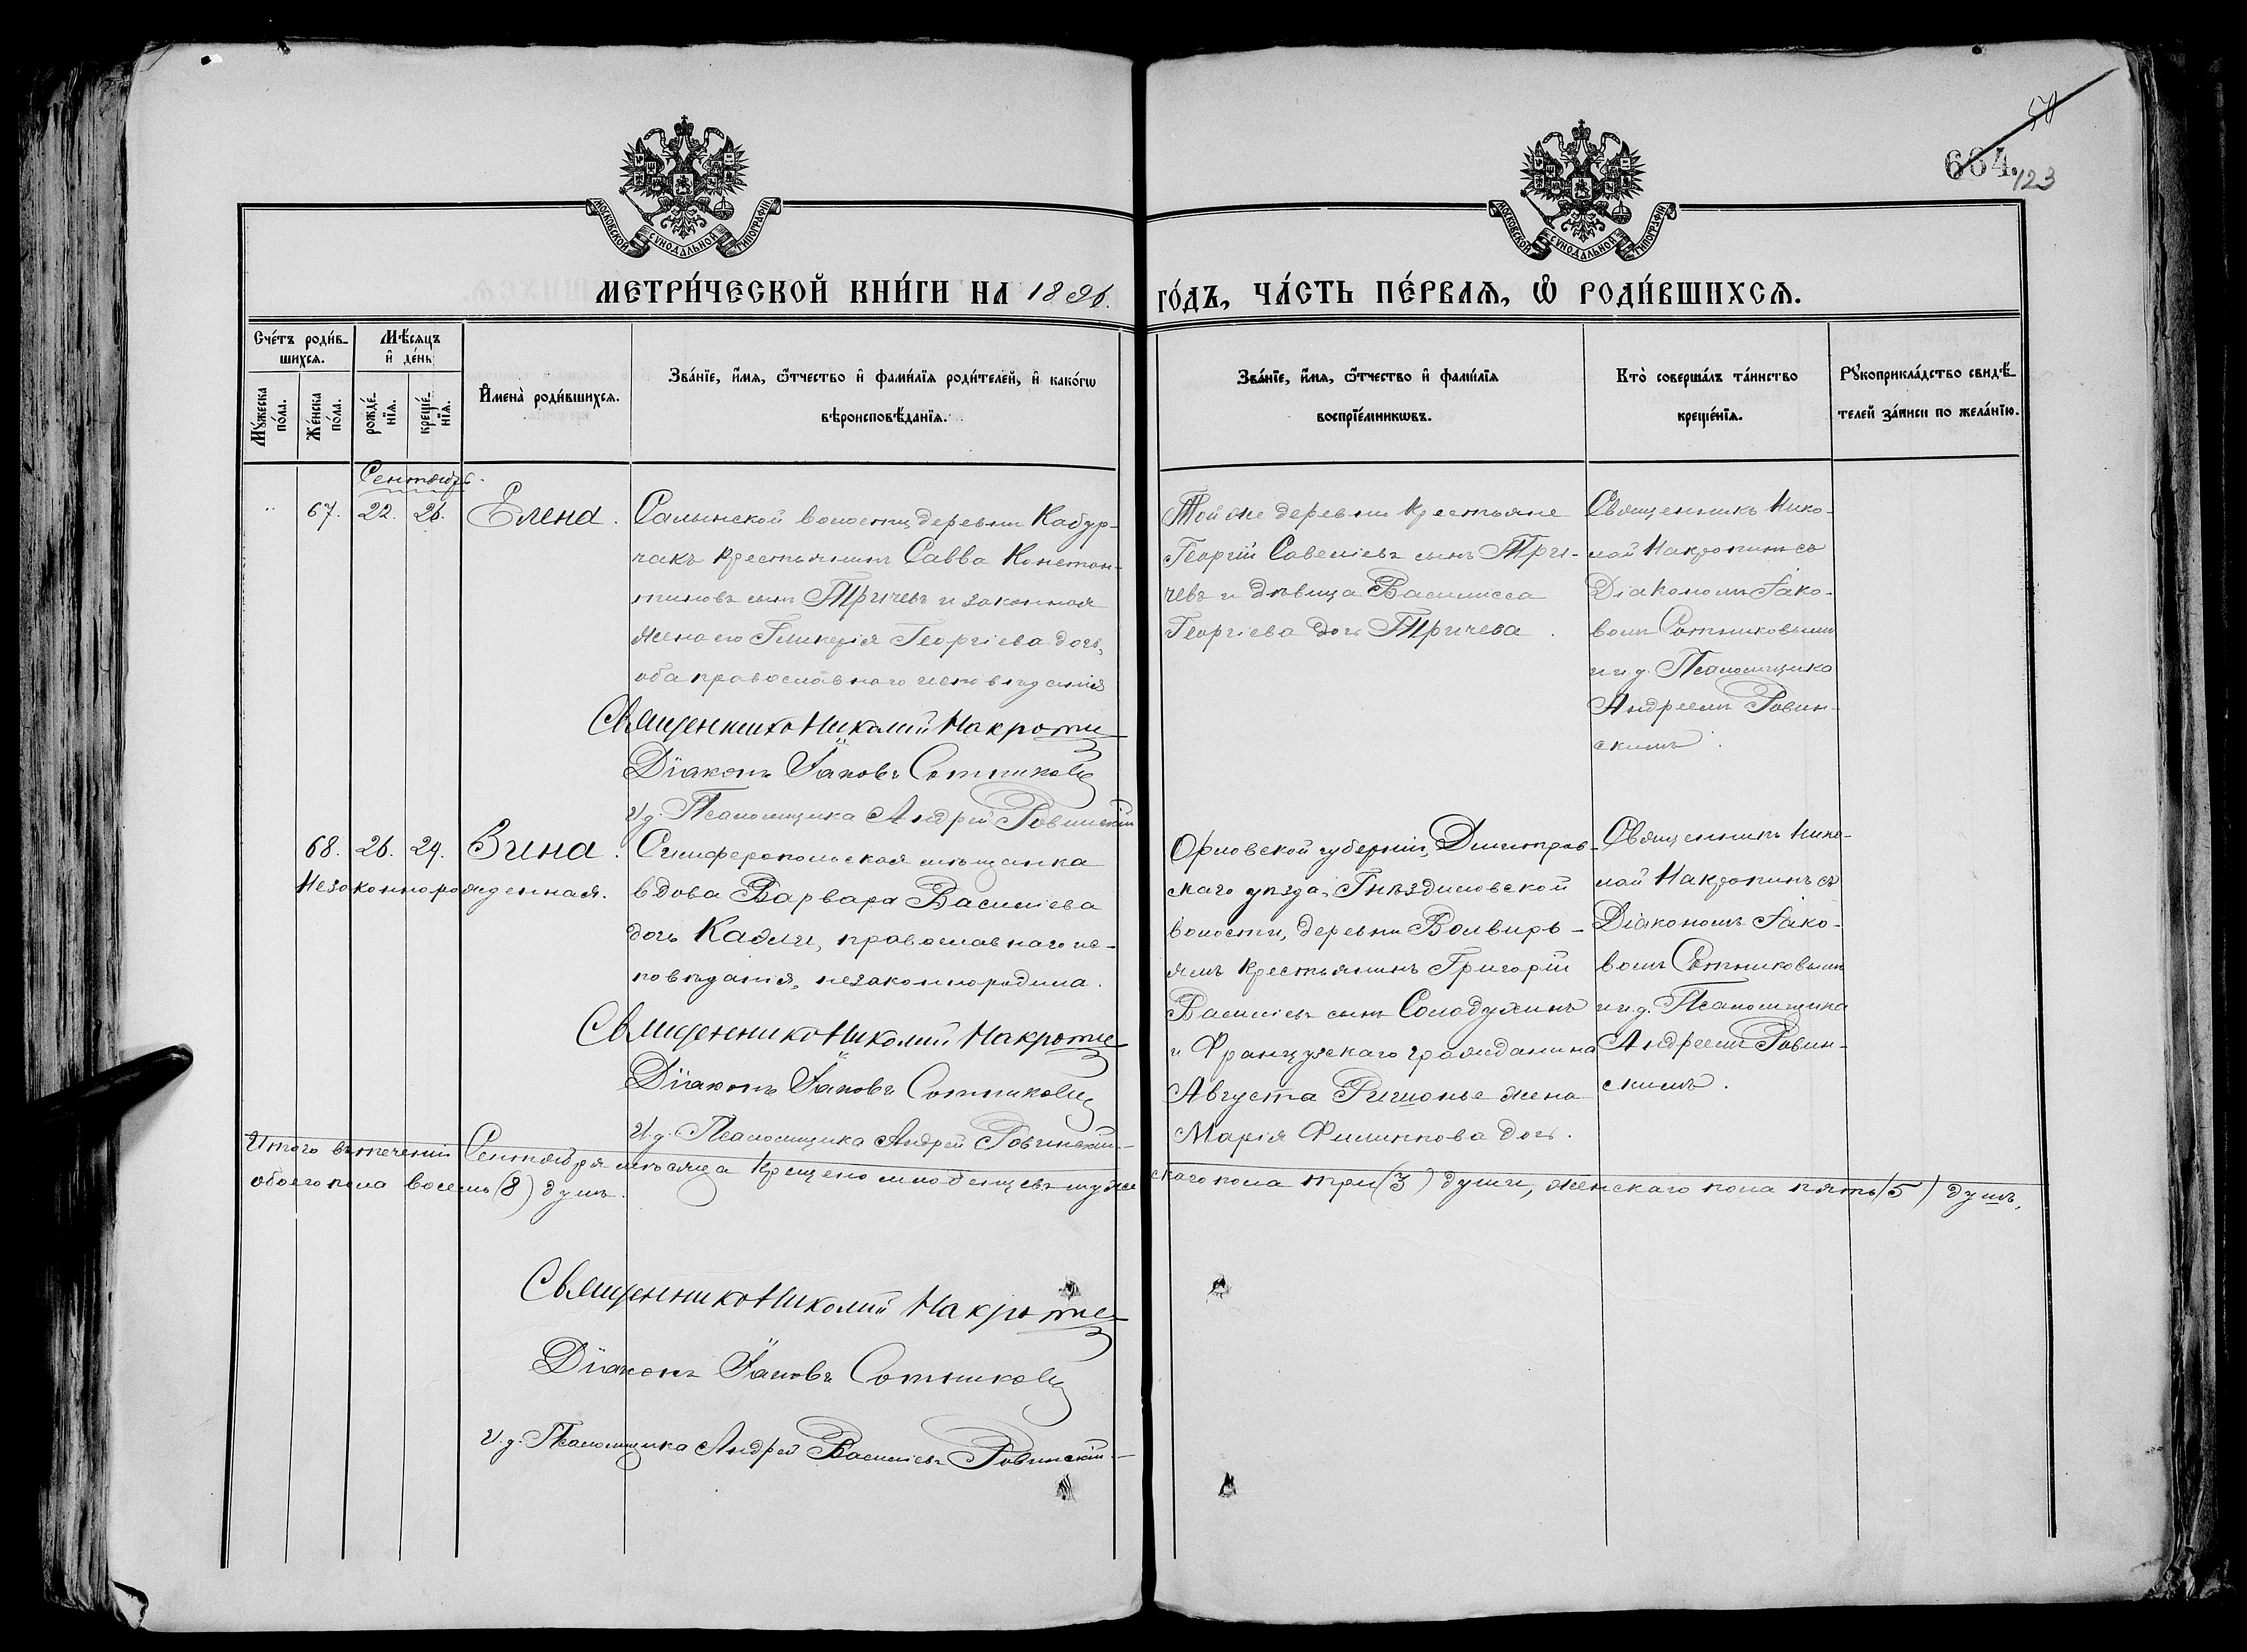 664.
123
МОСКОВСКОЙ СѴНОДАЛЬНОЙ ТИПОГРАФІИ
МОСКОВСКОЙ СѴНОДАЛЬНОЙ ТИПОГРАФІИ
МЕТРИ́ЧЕСКОЙ КНИ́ГИ НА 1896.
ГО́ДЪ, ЧА́СТЬ ПЕ́РВАЯ, Ѡ РОДИ́ВШИХСЯ.
Сче́тъ роди́в-
шихся.
Мѣ́сяцъ
и де́нь
Му́жеска
по́ла.
Же́нска
по́ла.
рожде́-
нїя.
креще́-
нїя.
Имена̀ роди́вшихся.
Зва́нїе, и́мя, ѻ҆́тчество и фами́лїя роди́телей, и како́гѡ
вѣроисповѣ́данїя.
Зва́нїе, и́мя, ѻ҆́тчество и фами́лїя
воспрїе́мникѡвъ.
Кто̀ соверша́лъ та́инство
креще́нїя.
Рукоприкла́дство свидѣ́-
телей за́писи по жела́нїю.
Сентябрь.
67. 22. 26. Елена.
Салынской волости, деревни Кабур-
чакъ крестьянинъ Савва Констан-
тиновъ сынъ Тричевъ и законная
жена его Гликерія Георгіева дочь,
оба православнаго исповѣданія
Священникъ Николай Макротин
Діаконъ Іаковъ Сотников
И. д. Псаломщика Андрей Ровинскій
Той же деревни крестьяне
Георгій Савеліевъ сынъ Три-
чевъ и дѣвица Василисса
Георгіева дочь Тричева.
Священникъ Нико-
лай съ
Діакономъ Іако-
вомъ Сотниковымъ
и и. д. Псаломщика
Андреемъ Ровин-
скимъ.
68. 26. 29. Зина.
Незаконнорожденная.
Симферопольская мѣщанка
вдова Варвара Василіева
дочь православнаго ис-
повѣданія, незаконнородила.
Священникъ Николай Макротин
Діаконъ Іаковъ Сотников
И. д. Псаломщика Андрей Ровинскій
Орловской губерніи, Дмитров-
скаго уѣзда, Гнѣздиловской
волости, деревни
крестьянинъ Григорій
Василіевъ сынъ Солодухинъ
и Французскаго гражданина
Августа жена
Марія Филиппова дочь.
Священникъ Нико-
лай съ
Діакономъ Іако-
вомъ Сотниковымъ
и и. д. Псаломщика
Андреемъ Ровин-
скимъ.
Итого въ теченіи Сентября мѣсяца крещено младенцевъ муже
скаго пола три (3) души, женскаго пола пять (5) душъ,
обоего пола восемь (8) душъ.
Священникъ Николай Макротин
Діаконъ Іаковъ Сотников
И. д. Псаломщика Андрей Василіевъ Ровинскій